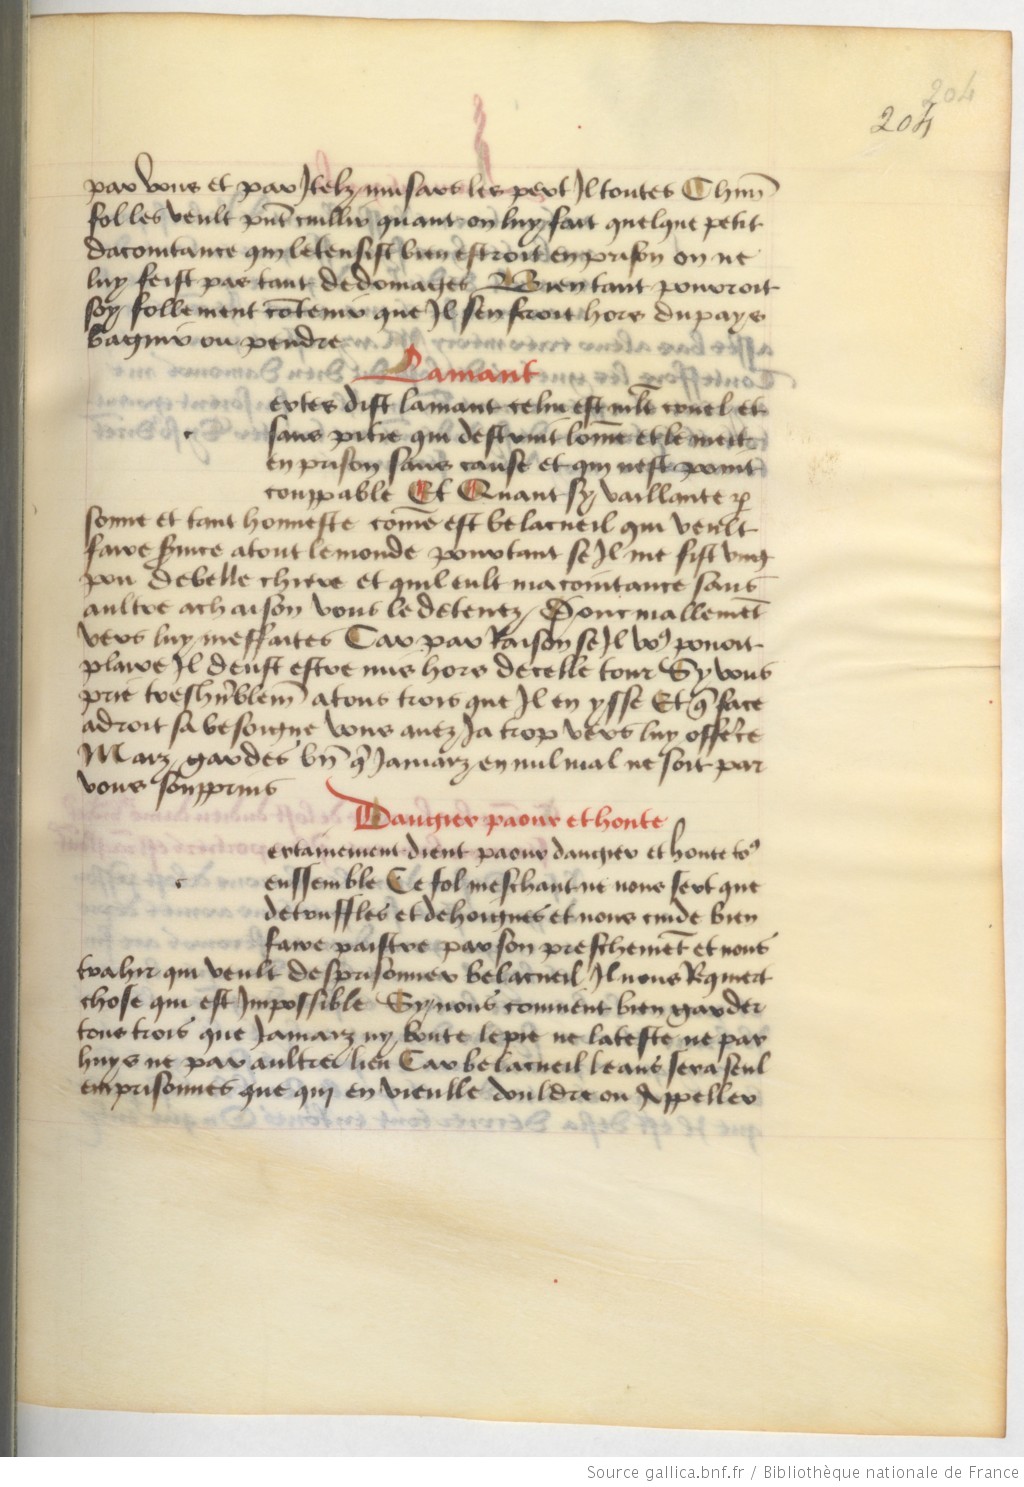 204
204
par vous et par Itelz musars les pert Il toutes Chũn
fol les veult pñt cuillir quant on luy fait quelque petit
dacointance qui le tensist bien estroit en prison on ne
luy feist pas tant de domages Bien tant pourroit
soy follement cõtenir que Il sen feroit hors du pays
baguir ou pendre
Lamant
ertes dist lamant celui est mlt cruel et
c sans pitie qui destruit lõme et le met
en prison sans cause et qui nest point
couppable Et Quant sy vaillante p
sonne et tant honneste cõme est belacueil qui veult
faire suice a tout le monde pourtant se Il me fist vng
pou de belle chiere et quil eult macointance sans
aultre achaison vous le detenez Donc mallemẽt
vers luy meffaites Car par Raison se Il vo9 pouoit
plaire Il deust estre mis hors de celle tour Sy vous
prie treshũblemẽ a tous trois que Il en ysse Et q̃ face
adroit sa besoigne vous auez Ia trop vers luy offẽce
Marz gardes bñ q̃ Iamarz en nul mal ne soit par
vous souppris
Dangier paour et honte
ertainement dient paour dangier et honte to9
c enssemble Ce fol meschant ne nous sert que
de truffles et de hoignes et nous cuide bien
faire paistre par son preschemẽt et nous
trahir qui veult desprisonner belacueil Il nous Requiert
chose qui est Impossible Sy nous conuient bien garder
tous trois que Iamarz ny boute le pie ne la teste ne par
huys ne par aultre lieu Car belacueil leans sera seul
emprisonnes que qui en vieulle douldre ou Appeller
Source gallica.bnf.fr / Bibliothèque nationale de France